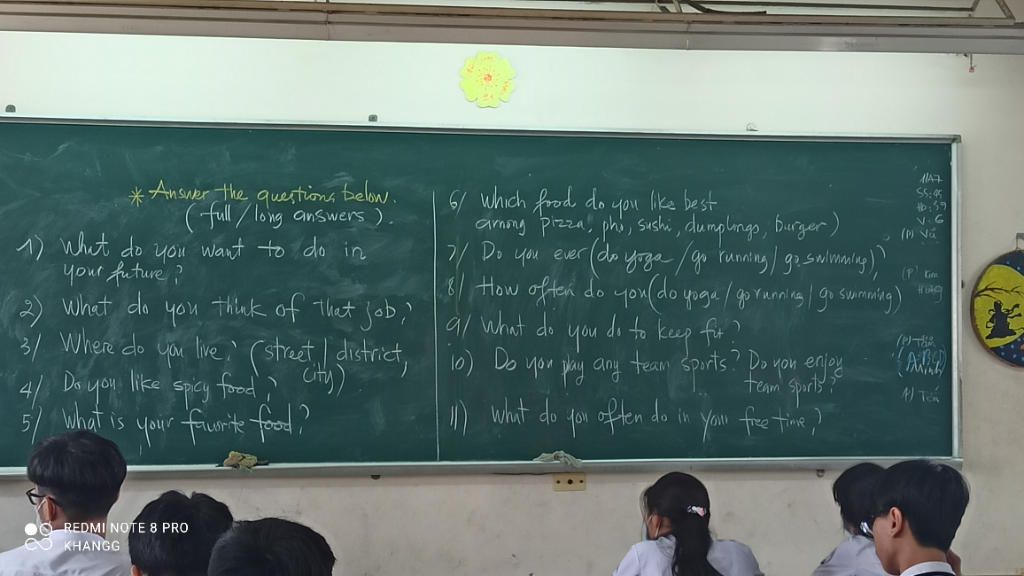 * Answer the questions below.
(full / long answers).
1) What do you want to do in
your future?
2) What do you think of that job?
3/ Where do you live? (street / district,
city)
4/ Do you like spicy food?
5/ What is your favorite food?
6/ Which food do you like best
among pizza, pho, sushi, dumplings, burger)
7/ Do you ever (do yoga / go running / go swimming)?
8/ How often do you (do yoga / go running / go swimming)
9/ What do you do to keep fit?
10) Do you play any team sports? Do you enjoy
team sports?
11) What do you often do in your free time?
V: 6
(P)
(P) Kim
(P)
(P)
REDMI NOTE 8 PRO
KHANGG